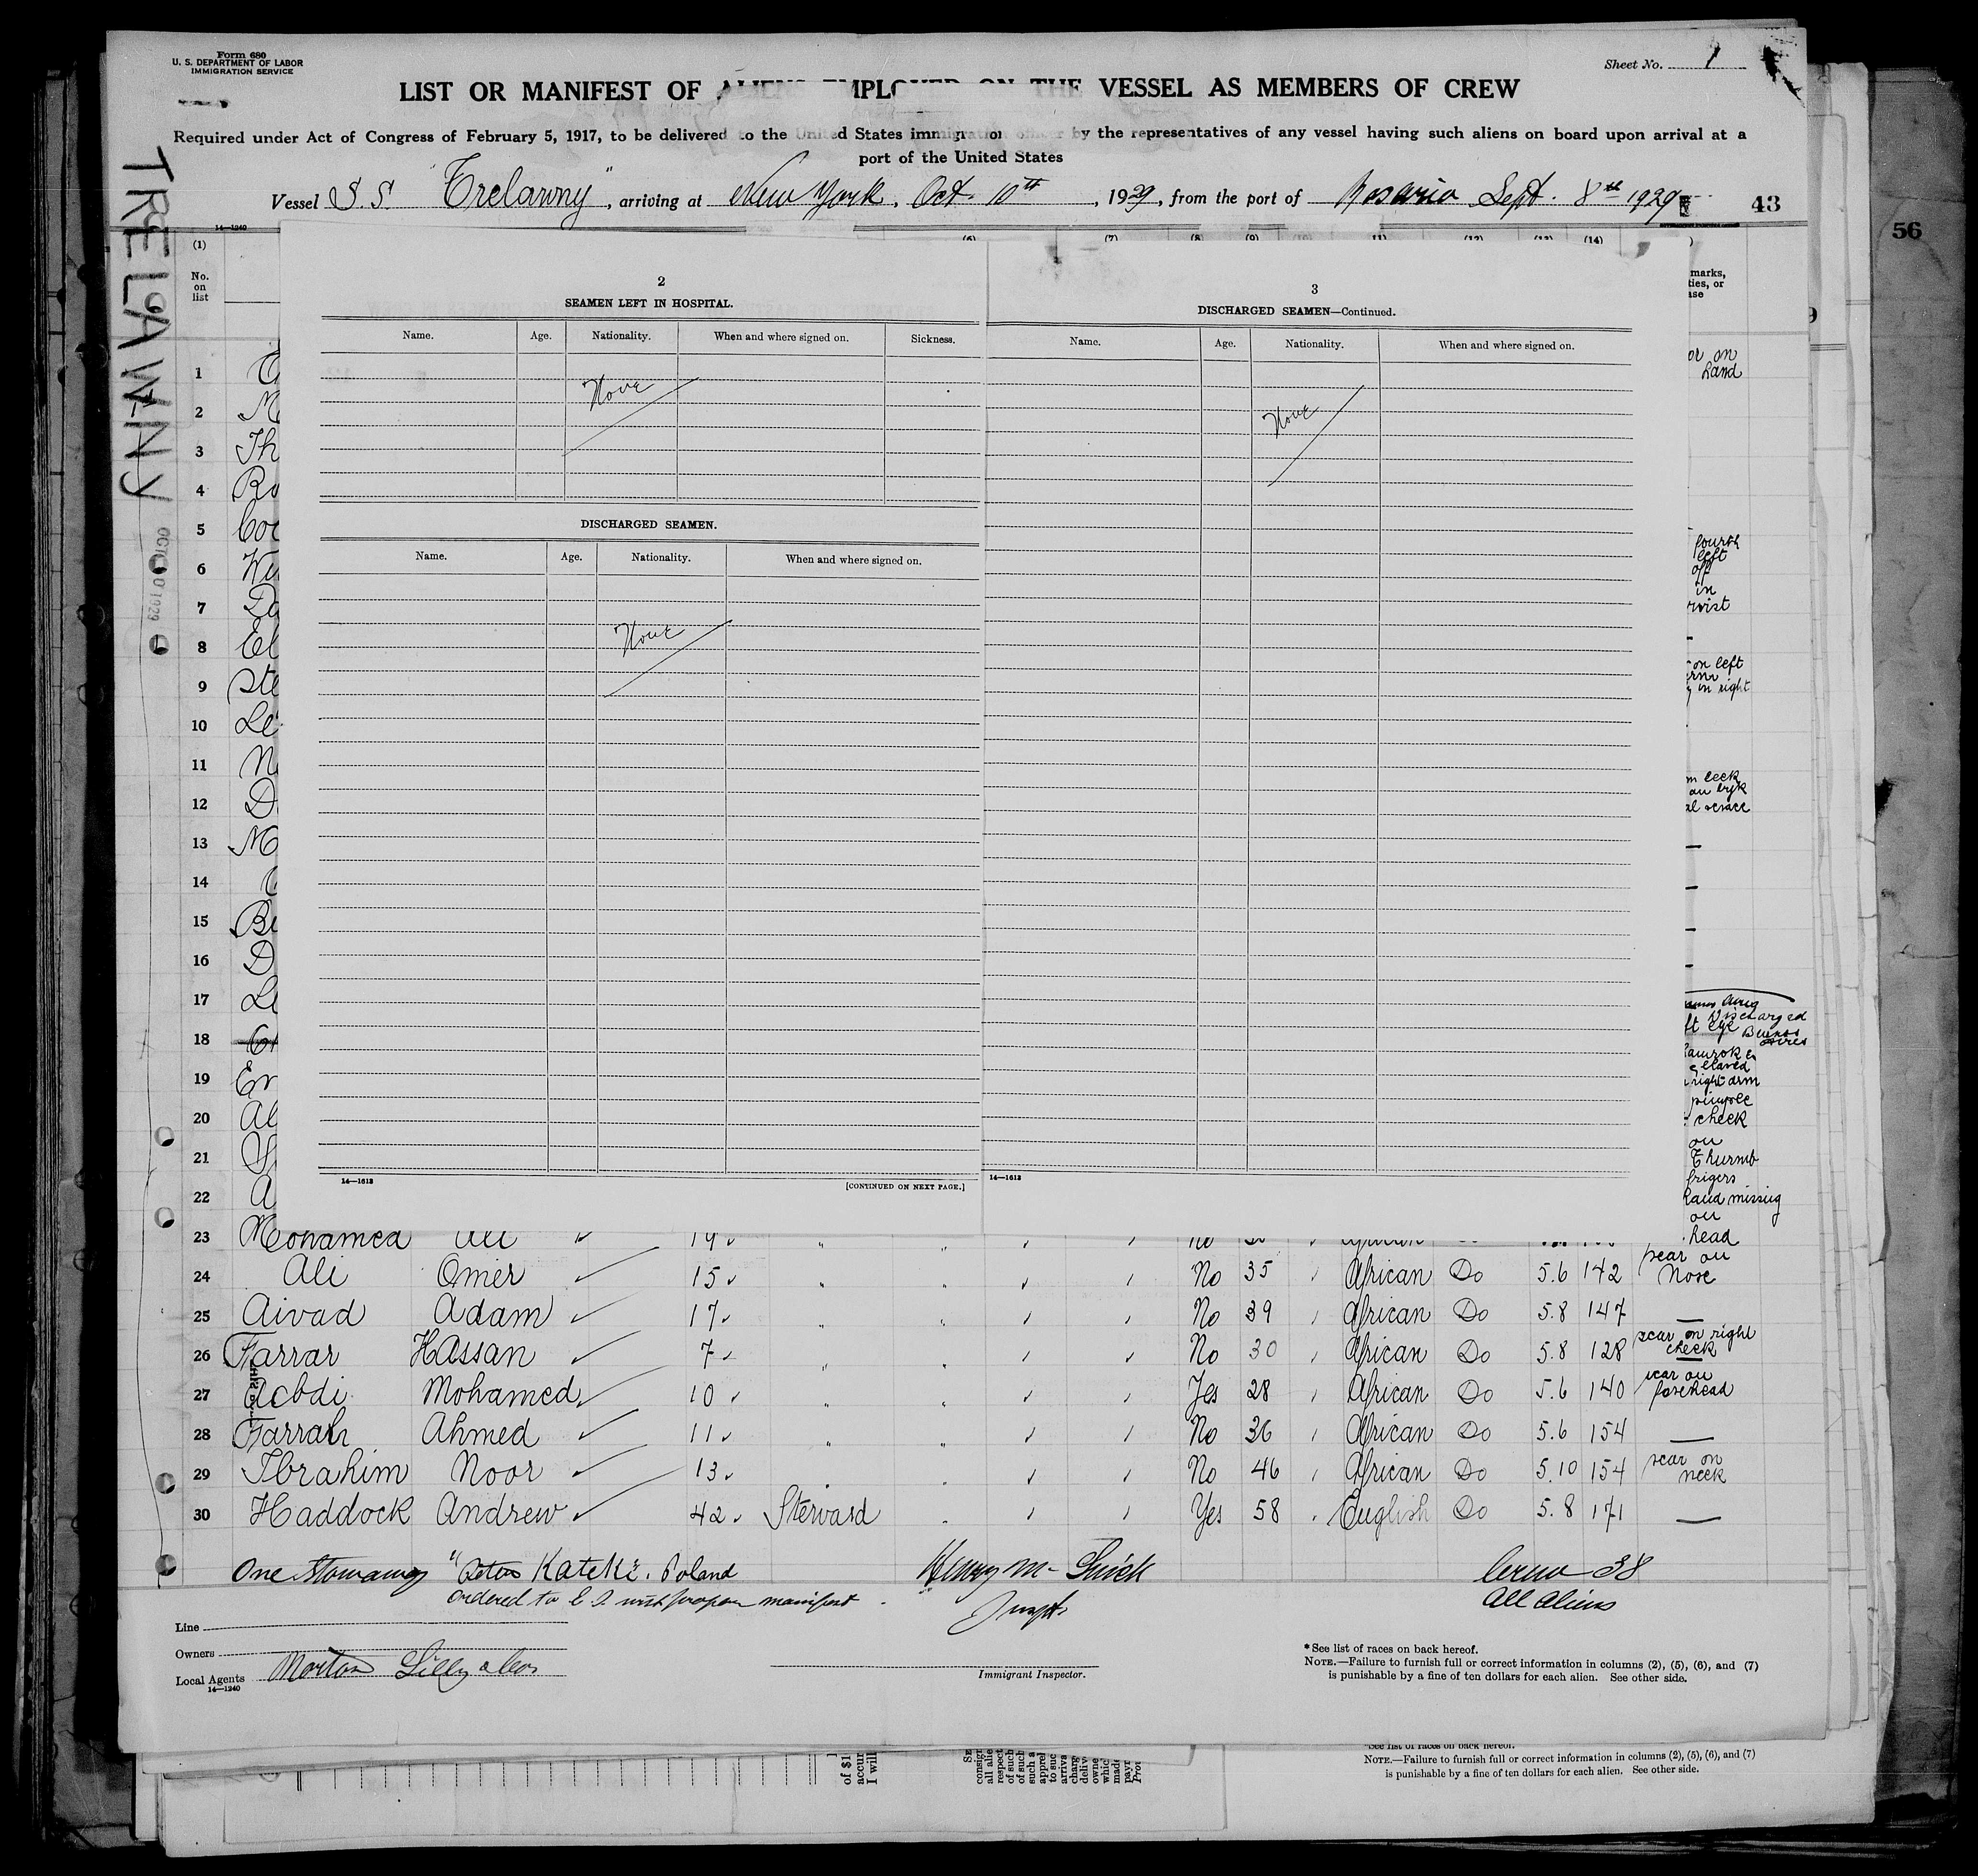 Form 680
U. S. DEPARTMENT OF LABOR
IMMIGRATION SERVICE
Sheet No. 1
LIST OR MANIFEST OF ALIENS EMPLOYED ON THE VESSEL AS MEMBERS OF CREW
Required under Act of Congress of February 5, 1917, to be delivered to the United States immigration officer by the representatives of any vessel having such aliens on board upon arrival at a
port of the United States
Vessel S.S. "Trelawny", arriving at New York, Oct. 10th, 1929, from the port of Rosario Sept. 8th 1929
43
56
TRELAWNY
OCT 10 1929
14—1240
(1)
No.
on
list
(6) (7) (8) (9) (10) (11) (12) (13) (14)
marks,
ties, or
ase
2
SEAMEN LEFT IN HOSPITAL.
Name. Age. Nationality. When and where signed on. Sickness.
None
DISCHARGED SEAMEN.
Name. Age. Nationality. When and where signed on.
None
14—1613
[CONTINUED ON NEXT PAGE.]
3
DISCHARGED SEAMEN—Continued.
Name. Age. Nationality. When and where signed on.
None
14—1613
1
or on
hand
2 M
3 Th
4 Ro
5 Coo
6 Wi
fourth
left
off
in
wrist
7 Da
8 El
9 Ste
on left
in right
10 Le
11 N
12 D
13 M
14
15 Be
16 D
17 Le
18
Discharged
ft eye Buenos
Aires
19 Er
right arm
20 Al
pimple
cheek
21
on
Thurmb
22 A
frigers
hand missing
on
23 Mohamed Ali 19 No African
head
24 Ali Omer 15 No 35 African Do 5.6 142 scar on
Nose
25 Aivad Adam 17 No 39 African Do 5.8 147 —
26 Farrar Hassan 7 No 30 African Do 5.8 128 scar on right
cheek
27 Acbdi Mohamed 10 Yes 28 African Do 5.6 140 scar on
forehead
28 Farrah Ahmed 11 No 36 African Do 5.6 154 —
29 Ibrahim Noor 13 No 46 African Do 5.10 154 scar on
neck
30 Haddock Andrew 42 Steward Yes 58 English Do 5.8 171 —
One Stowaway "Peter Kateki". Poland
ordered to E I with proper manifest
Henry M-
Inspt.
Crew 38
All Aliens
Line
Owners
Local Agents Morton Lilly & Co
14—1240
Immigrant Inspector.
*See list of races on back hereof.
NOTE.—Failure to furnish full or correct information in columns (2), (5), (6), and (7)
is punishable by a fine of ten dollars for each alien. See other side.
*See list of races on back hereof.
NOTE.—Failure to furnish full or correct information in columns (2), (5), (6), and (7)
is punishable by a fine of ten dollars for each alien. See other side.